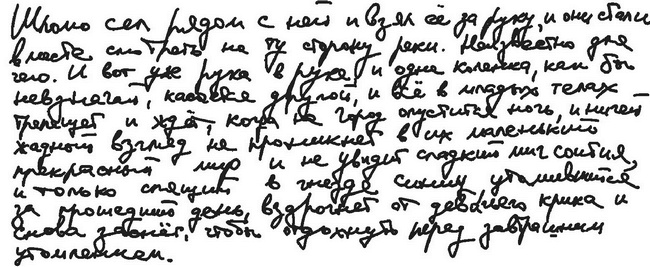 Шломо сел рядом с ней и взял её за руку, и они стали
вместе смотреть на ту сторону реки. Неизвестно для
чего. И вот уж рука в руке, и одна коленка, как бы
невзначай, касается другой, и всё в младых телах
трепещет и ждёт, когда на город опустится ночь, и ничей
жадный взгляд не проникнет в их маленький
прекрасный мир и не увидит сладкий миг соития,
и только спящий в гнезде синиц утомившийся
за прошедший день, вздрогнет от девичьего крика и
снова заснёт, чтобы отдохнуть перед завтрашним
утомлением.